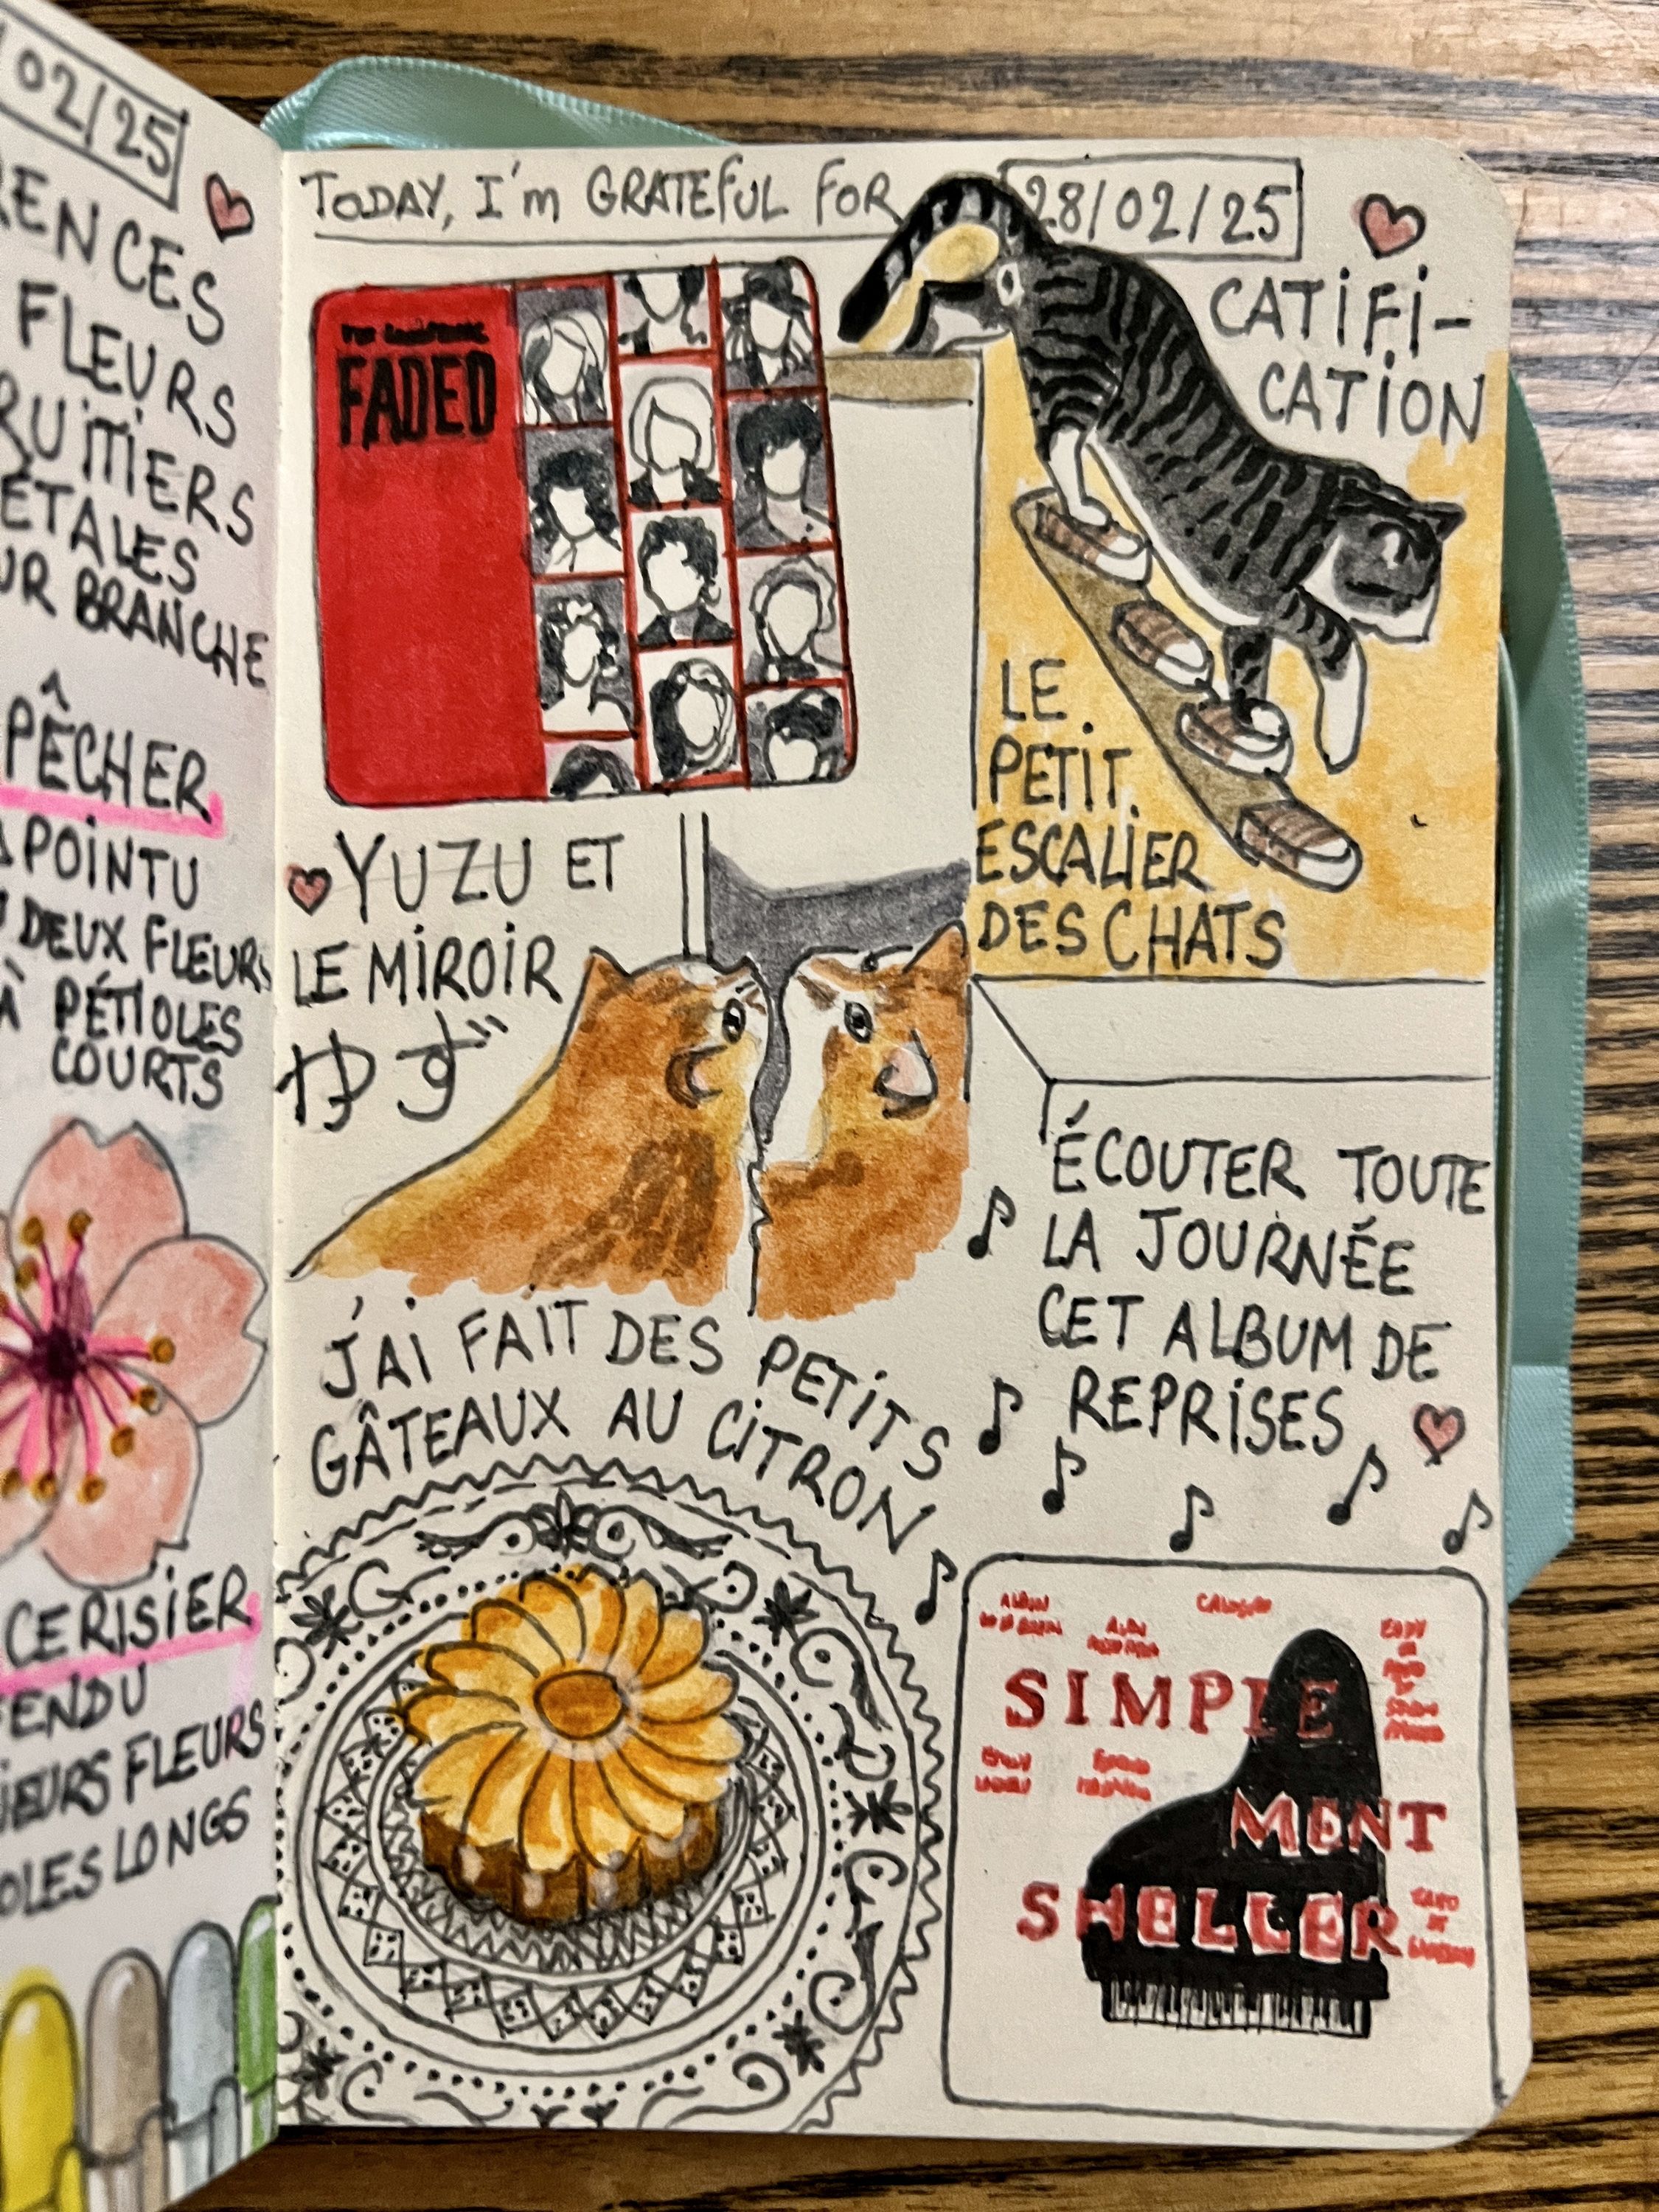 02/25
RENCES
FLEURS
RUITIERS
ÉTALES
UR BRANCHE
PÊCHER
POINTU
DEUX FLEURS
À PÉTIOLES
COURTS
CERISIER
FENDU
IEURS FLEURS
OLES LONGS
TODAY, I'm GRATEFUL FOR
28/02/25
CATIFI-
CATION
FADED
LE
PETIT
ESCALIER
DES CHATS
YUZU ET
LE MIROIR
ゆず
ÉCOUTER TOUTE
LA JOURNÉE
CET ALBUM DE
REPRISES
J'AI FAIT DES PETITS
GÂTEAUX AU CITRON
SIMPLE
MENT
SHELLER